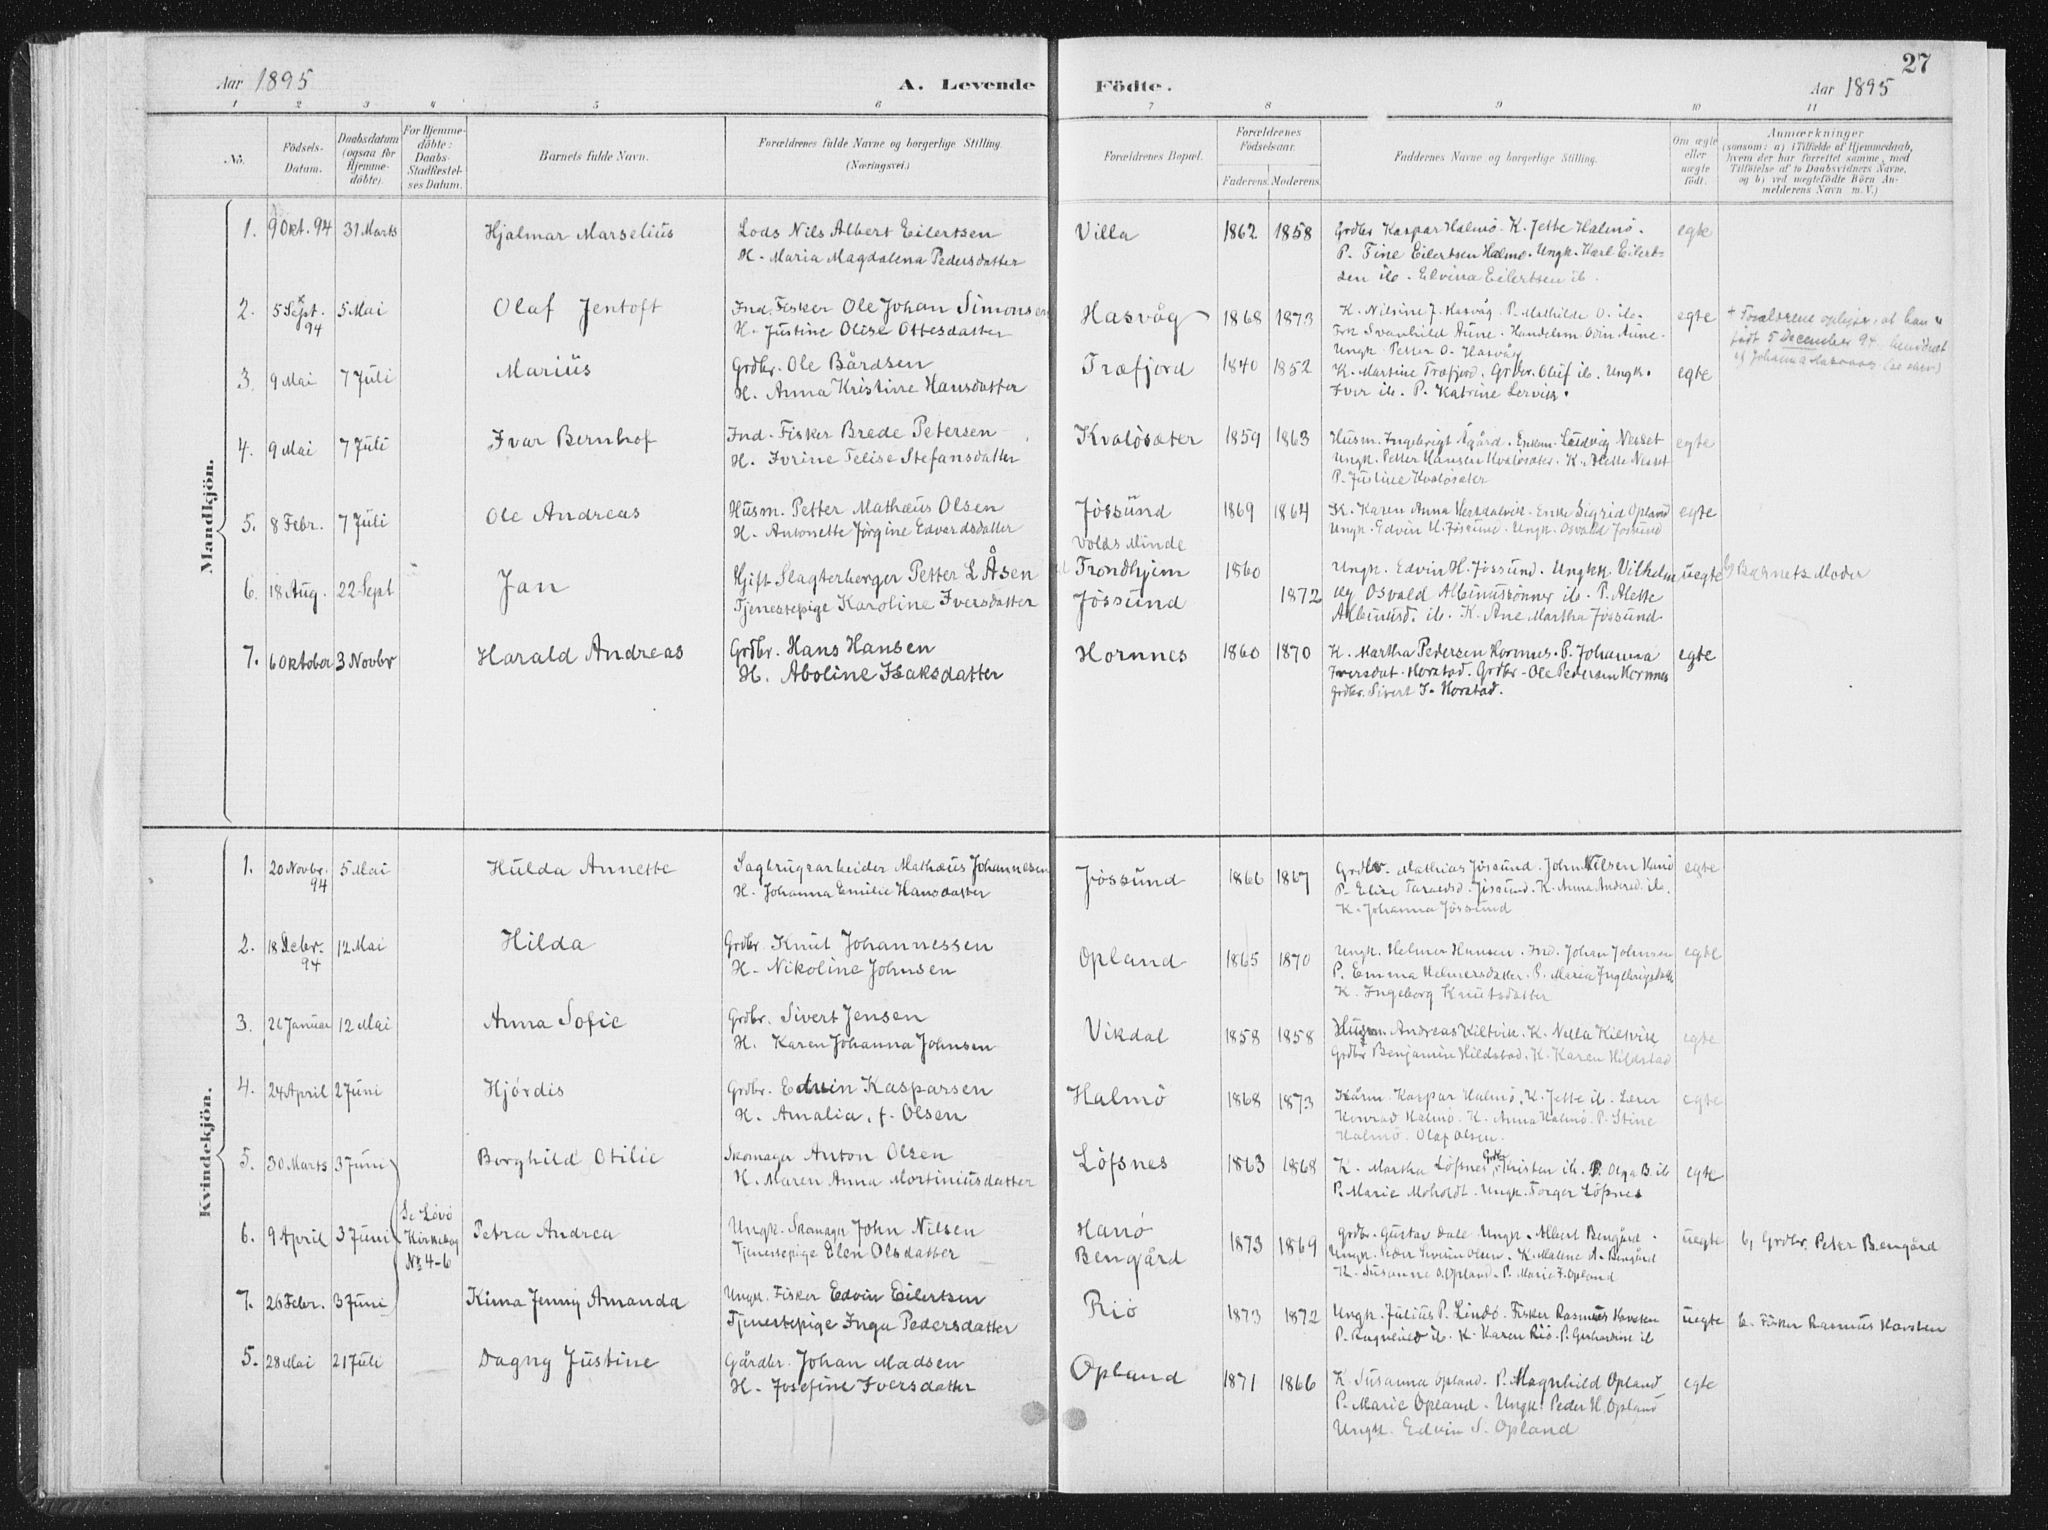 27
Aar 1895 A. Levende Födte. Aar 1895
1 2 3 4 5 6 7 8 9 10 11
No.
Födsels-Datum.
Daabsdatum (ogsaa for Hjemmedöbte).
For Hjemmedöbte: Daabs-Stadfæstelses Datum.
Barnets fulde Navn.
Forældrenes fulde Navne og borgerlige Stilling.
(Næringsvei.)
Forældrenes Bopæl.
Forældrenes Födselsaar.
Faderens. Moderens.
Faddernes Navne og borgerlige Stilling.
Om ægte eller uægte födt.
Anmærkninger
(saasom: a) i Tilfælde af Hjemmedaab,
hvem der har forrettet samme, med
Tilföielse af to Daabsvidners Navne,
og b) ved uægtefödte Börn An-
melderens Navn m. V.)
Mandkjön.
1. 9 Okt. 94 31 Marts Hjalmar Marselius Lods Nils Albert Eilertsen Villa 1862 1858 Grdbr Kaspar Halmö. K. Jette Halmö. egte
H. Maria Magdalena Pedersdatter P. Tine Eilertsen Halmö. Ungk. Karl Eilert-
sen ib. Elvina Eilertsen ib.
2. 5 Sept. 94 5 Mai Olaf Jentoft Ind. Fisker Ole Johan Simonsen Hasvåg 1868 1873 K. Nilsine J. Hasvåg. P. Mathilde O. ib. egte + Forældrene oplyser, at han er
H. Justine Olise Ottesdatter Frk Svanhild Aune. Handelsm Odin Aune. født 5 December 94.
Ungk. Petter O. Hasvåg
3. 9 Mai 7 Juli Marius Grdbr. Ole Bårdsen Træfjord 1840 1852 K. Martine Træfjord. Grdbr. Oluf ib. Ungk. egte
H. Anna Kristine Hansdatter Iver ib. P. Katrine Lervik.
4. 9 Mai 7 Juli Ivar Bernhof Ind. Fisker Brede Petersen Kvaløsæter 1859 1863 Husm. Ingebrigt Ågård. Enkem. Ludvig Nesset egte
H. Ivrine Telise Stefansdatter Ungk. Petter Hansen Kvaløsæter. K. Mette Nesset
P. Justine Kvaløsæter
5. 8 Febr. 7 Juli Ole Andreas Husm. Petter Mathæus Olsen Jøssund 1869 1864 K. Karen Anna Verdalvik. Enke Sigrid Opland egte
H. Antonette Jørgine Edvardsdatter Ungk. Edvin H. Jøssund. Ungk. Osvald Jøssund
Volds Minde
6. 18 Aug. 22 Sept Jan Gift Slagterborger Petter L Åsen Trondhjem 1860 Ungk. Edvin H. Jøssund. Ungkk. Vilhelm uegte b) Barnets Moder
Tjenestepige Karoline Iversdatter Jøssund 1872 og Osvald Albinussønner ib. P. Alette
Albinusd. ib. K. Ane Martha Jøssund.
7. 6 Oktober 3 Novbr Harald Andreas Grdbr. Hans Hansen Hornnes 1860 1870 K. Martha Pedersen Hornnes. P. Johanna egte
H. Aboline Isaksdatter Iversdat. Horstad. Grdbr. Ole Pedersen Hornnes
Grdbr. Sivert I. Horstad.
Kvindekjön.
1. 20 Novbr. 94 5 Mai Hulda Annette Sagbrugsarbeider Mathæus Johannesen Jøssund 1866 1867 Grdbr. Mathias Jøssund. John Nilsen Hanö egte
H. Johanna Emilie Hansdatter P. Elise Jøssund. K. Anna Andersd ib.
K. Johanna Jøssund
2. 18 Decbr. 94 12 Mai Hilda Grdbr. Knut Johannessen Opland 1865 1870 Ungk. Helmer Hansen. Ind. Johan Johnsen egte
H. Nikoline Johnsen P. Emma Helmersdatter. P. Maria Ingebrigtsdatt
K. Ingeborg Knutsdatter
3. 26 Januar 12 Mai Anna Sofie Grdbr. Sivert Jensen Vikdal 1858 1858 Husm. Andreas Kiltvik. K. Nella Kiltvik egte
H. Karen Johanna Johnsen Grdbr Benjamin Hildstad. K. Karen Hildstad
4. 24 April 2 Juni Hjördis Grdbr. Edvin Kasparsen Halmö 1868 1873 Kårm. Kaspar Halmö, K. Jette ib. Lærer egte
H. Amalia f. Olsen Konrad Halmö. K. Anna Halmö. P. Stine
Halmö. Olaf Olsen.
5. 30 Marts 3 Juni Borghild Otilie Skomager Anton Olsen Löfsnes 1863 1868 K. Martha Löfsnes. Grdbr. Kristen ib. P. Olga B ib egte
H. Maren Anna Mortiniusdatter P. Marie Moholdt. Ungk. Torger Löfsnes
Se Løvö Kirkebog No 4-6
6. 9 April 3 Juni Petra Andrea Ungk. Skomager John Nilsen Hanö 1873 1869 Grdbr. Gustav Dale. Ungk. Albert Bengård. uegte b, Grdbr. Peter Bengård
Tjenestepige Elen Olsdatter Bengård Ungk. Peder Olsen. K. Malene A. Bengård
K. Susanne O. Opland. P. Marie F. Opland
7. 26 Febr. 3 Juni Kima Jenny Amanda Ungk. Fisker Edvin Eilertsen Riö 1873 1872 Ungk. Julius P. Lindö. Fisker Rasmus Karsten uegte b. Fisker Rasmus Karsten
Tjenestepige Inga Pedersdatter P. Ragnhild ib. K. Karen Riö. P. Gerhardine ib
5. 28 Mai 21 Juli Dagny Justine Gårdbr. Johan Madsen Opland 1871 1866 K. Susanna Opland. P. Magnhild Opland egte
H. Josefine Iversdatter P. Marie Opland. Ungk. Peder H. Opland
Ungk. Edvin S. Opland